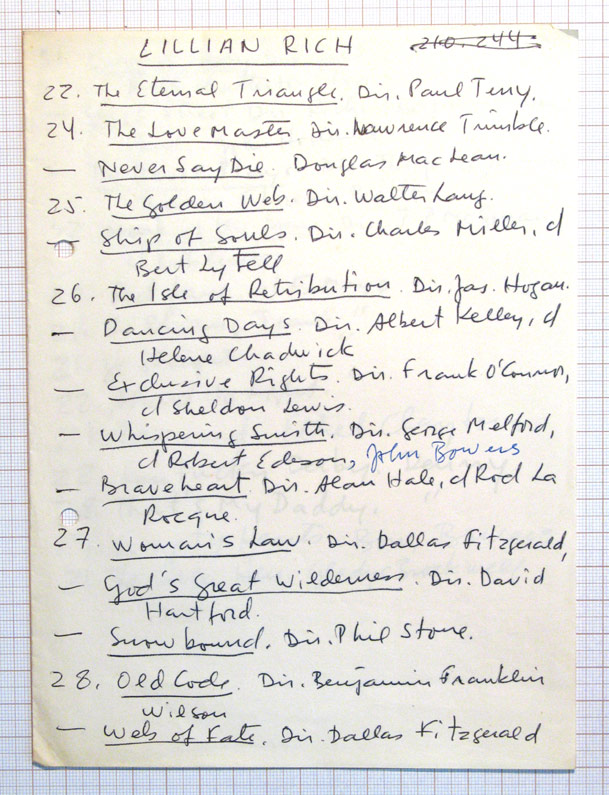 LILLIAN RICH 210.244
22. The Eternal Triangle. Dir. Paul Terry.
24. The Love Master. Dir. Lawrence Trimble.
— Never Say Die. Douglas MacLean.
25. The Golden Web. Dir. Walter Lang.
— Ship of Souls. Dir. Charles Miller, d
Bert Lytell
26. The Isle of Retribution. Dir. Jas. Hogan.
— Dancing Days. Dir. Albert Kelley, d
Helene Chadwick
— Exclusive Rights. Dir. Frank O'Connor,
d Sheldon Lewis.
— Whispering Smith. Dir. George Melford,
d Robert Edeson, John Bowers
— Braveheart. Dir. Alan Hale, d Rod La
Rocque.
27. Woman's Law. Dir. Dallas Fitzgerald,
— God's Great Wilderness. Dir. David
Hartford.
— Snowbound. Dir. Phil Stone.
28. Old Code. Dir. Benjamin Franklin
Wilson
— Web of Fate. Dir. Dallas Fitzgerald